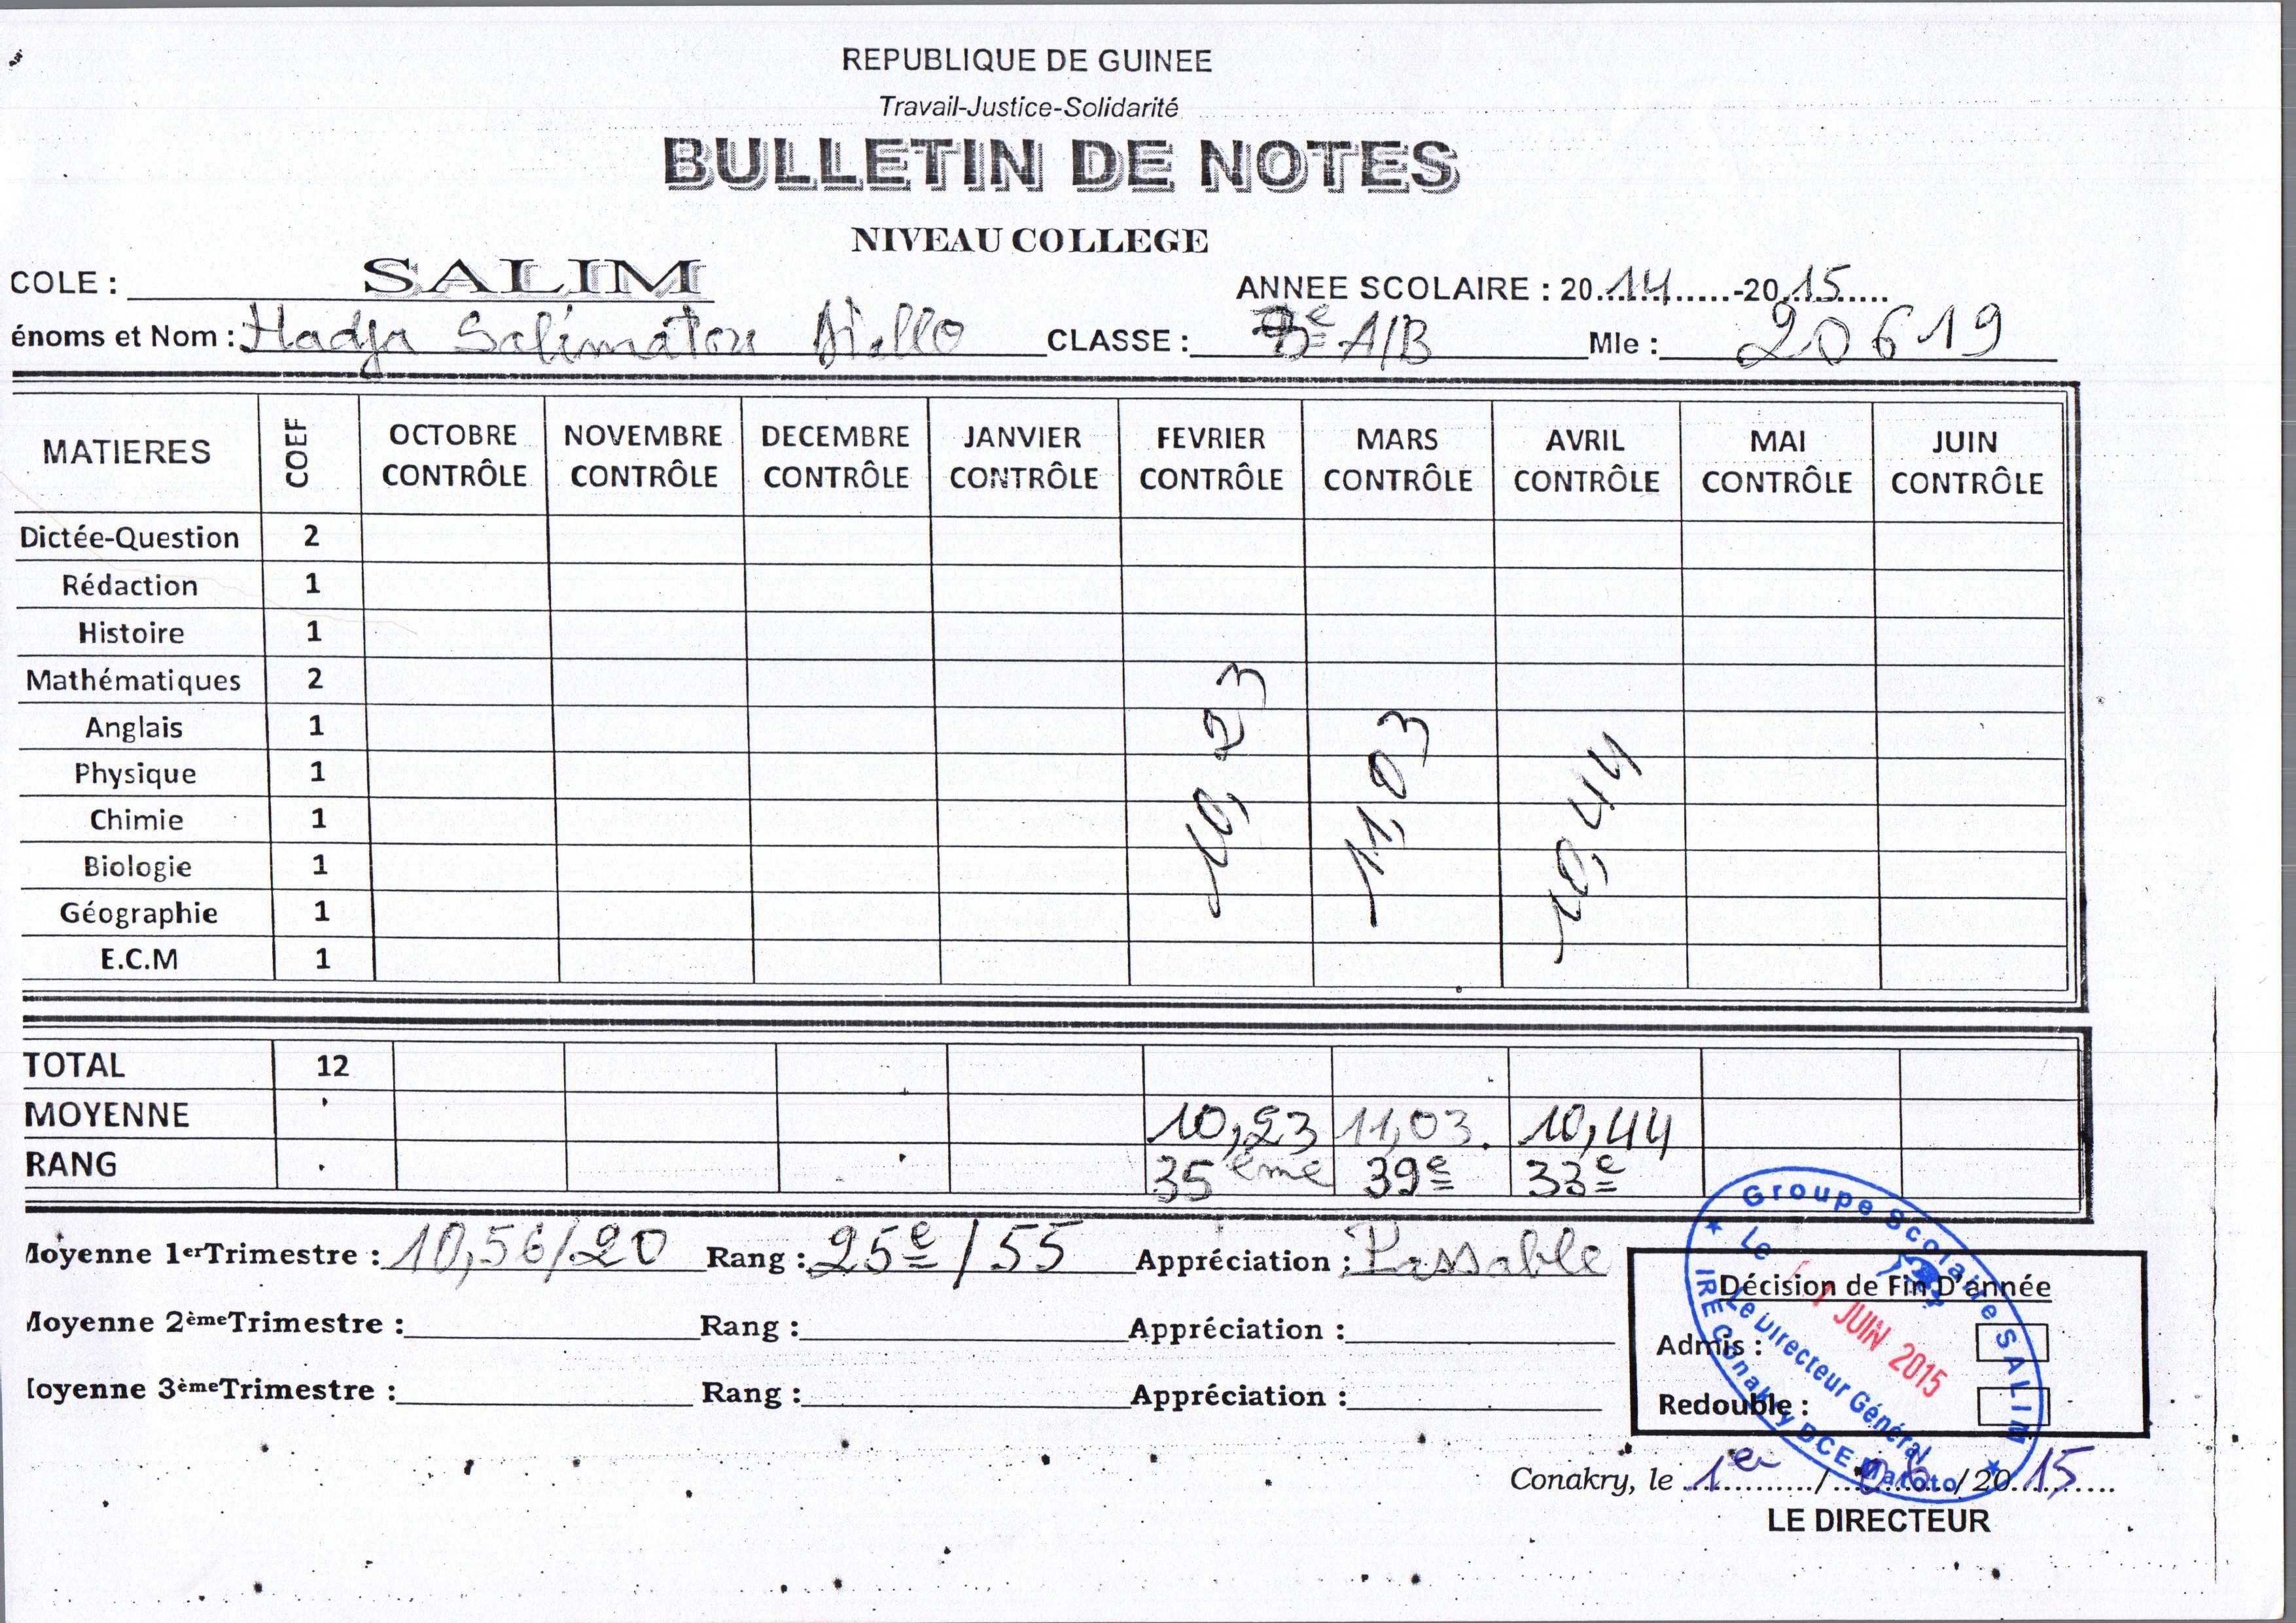 REPUBLIQUE DE GUINEE
Travail-Justice-Solidarité
BULLETIN DE NOTES
NIVEAU COLLEGE
COLE : SALIM ANNEE SCOLAIRE : 2014-2015
énoms et Nom : Hadja Salimatou Diallo CLASSE : A/B Mle : 20619
MATIERES COEF OCTOBRE CONTRÔLE NOVEMBRE CONTRÔLE DECEMBRE CONTRÔLE JANVIER CONTRÔLE FEVRIER CONTRÔLE MARS CONTRÔLE AVRIL CONTRÔLE MAI CONTRÔLE JUIN CONTRÔLE
Dictée-Question 2
Rédaction 1
Histoire 1
Mathématiques 2
Anglais 1
Physique 1
Chimie 1
Biologie 1
Géographie 1
E.C.M 1
10,23 11,03 10,44
TOTAL 12
MOYENNE 10,23 11,03 10,44
RANG 35ème 39e 33e
oyenne 1erTrimestre : 10,56/20 Rang : 25e/55 Appréciation : Passable
oyenne 2èmeTrimestre : Rang : Appréciation :
oyenne 3èmeTrimestre : Rang : Appréciation :
Décision de Fin D'année
Admis :
Redouble :
Groupe Scolaire SALIM
Le 1 JUIN 2015
Le Directeur Général
IRE Conakry DCE Matoto
Conakry, le 1er/06/2015
LE DIRECTEUR